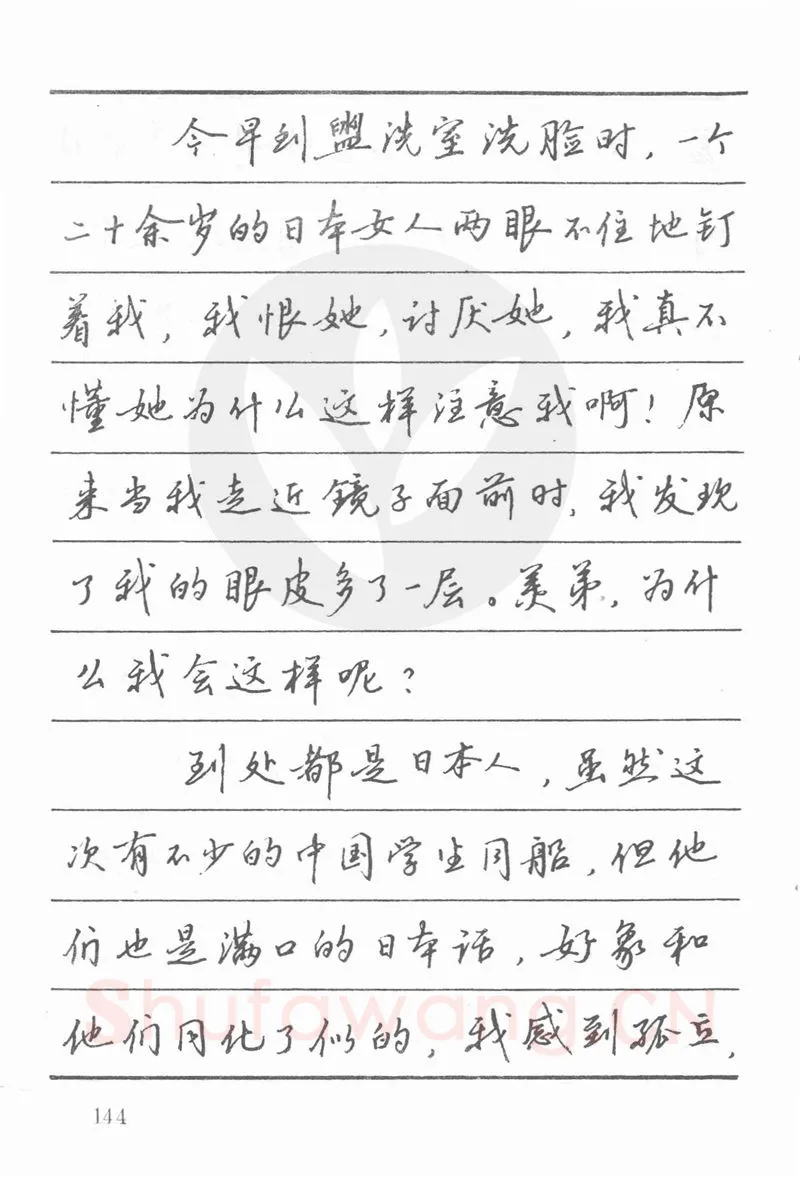 今早到盥洗室洗脸时，一个
二十余岁的日本女人两眼不住地钉
着我，我恨她，讨厌她，我真不
懂她为什么这样注意我啊！原
来当我走近镜子面前时，我发现
了我的眼皮多了一层。羡弟，为什
么我会这样呢？
到处都是日本人，虽然这
次有不少的中国学生同船，但他
们也是满口的日本话，好象和
他们同化了似的，我感到孤立，
Shufawang.CN
144